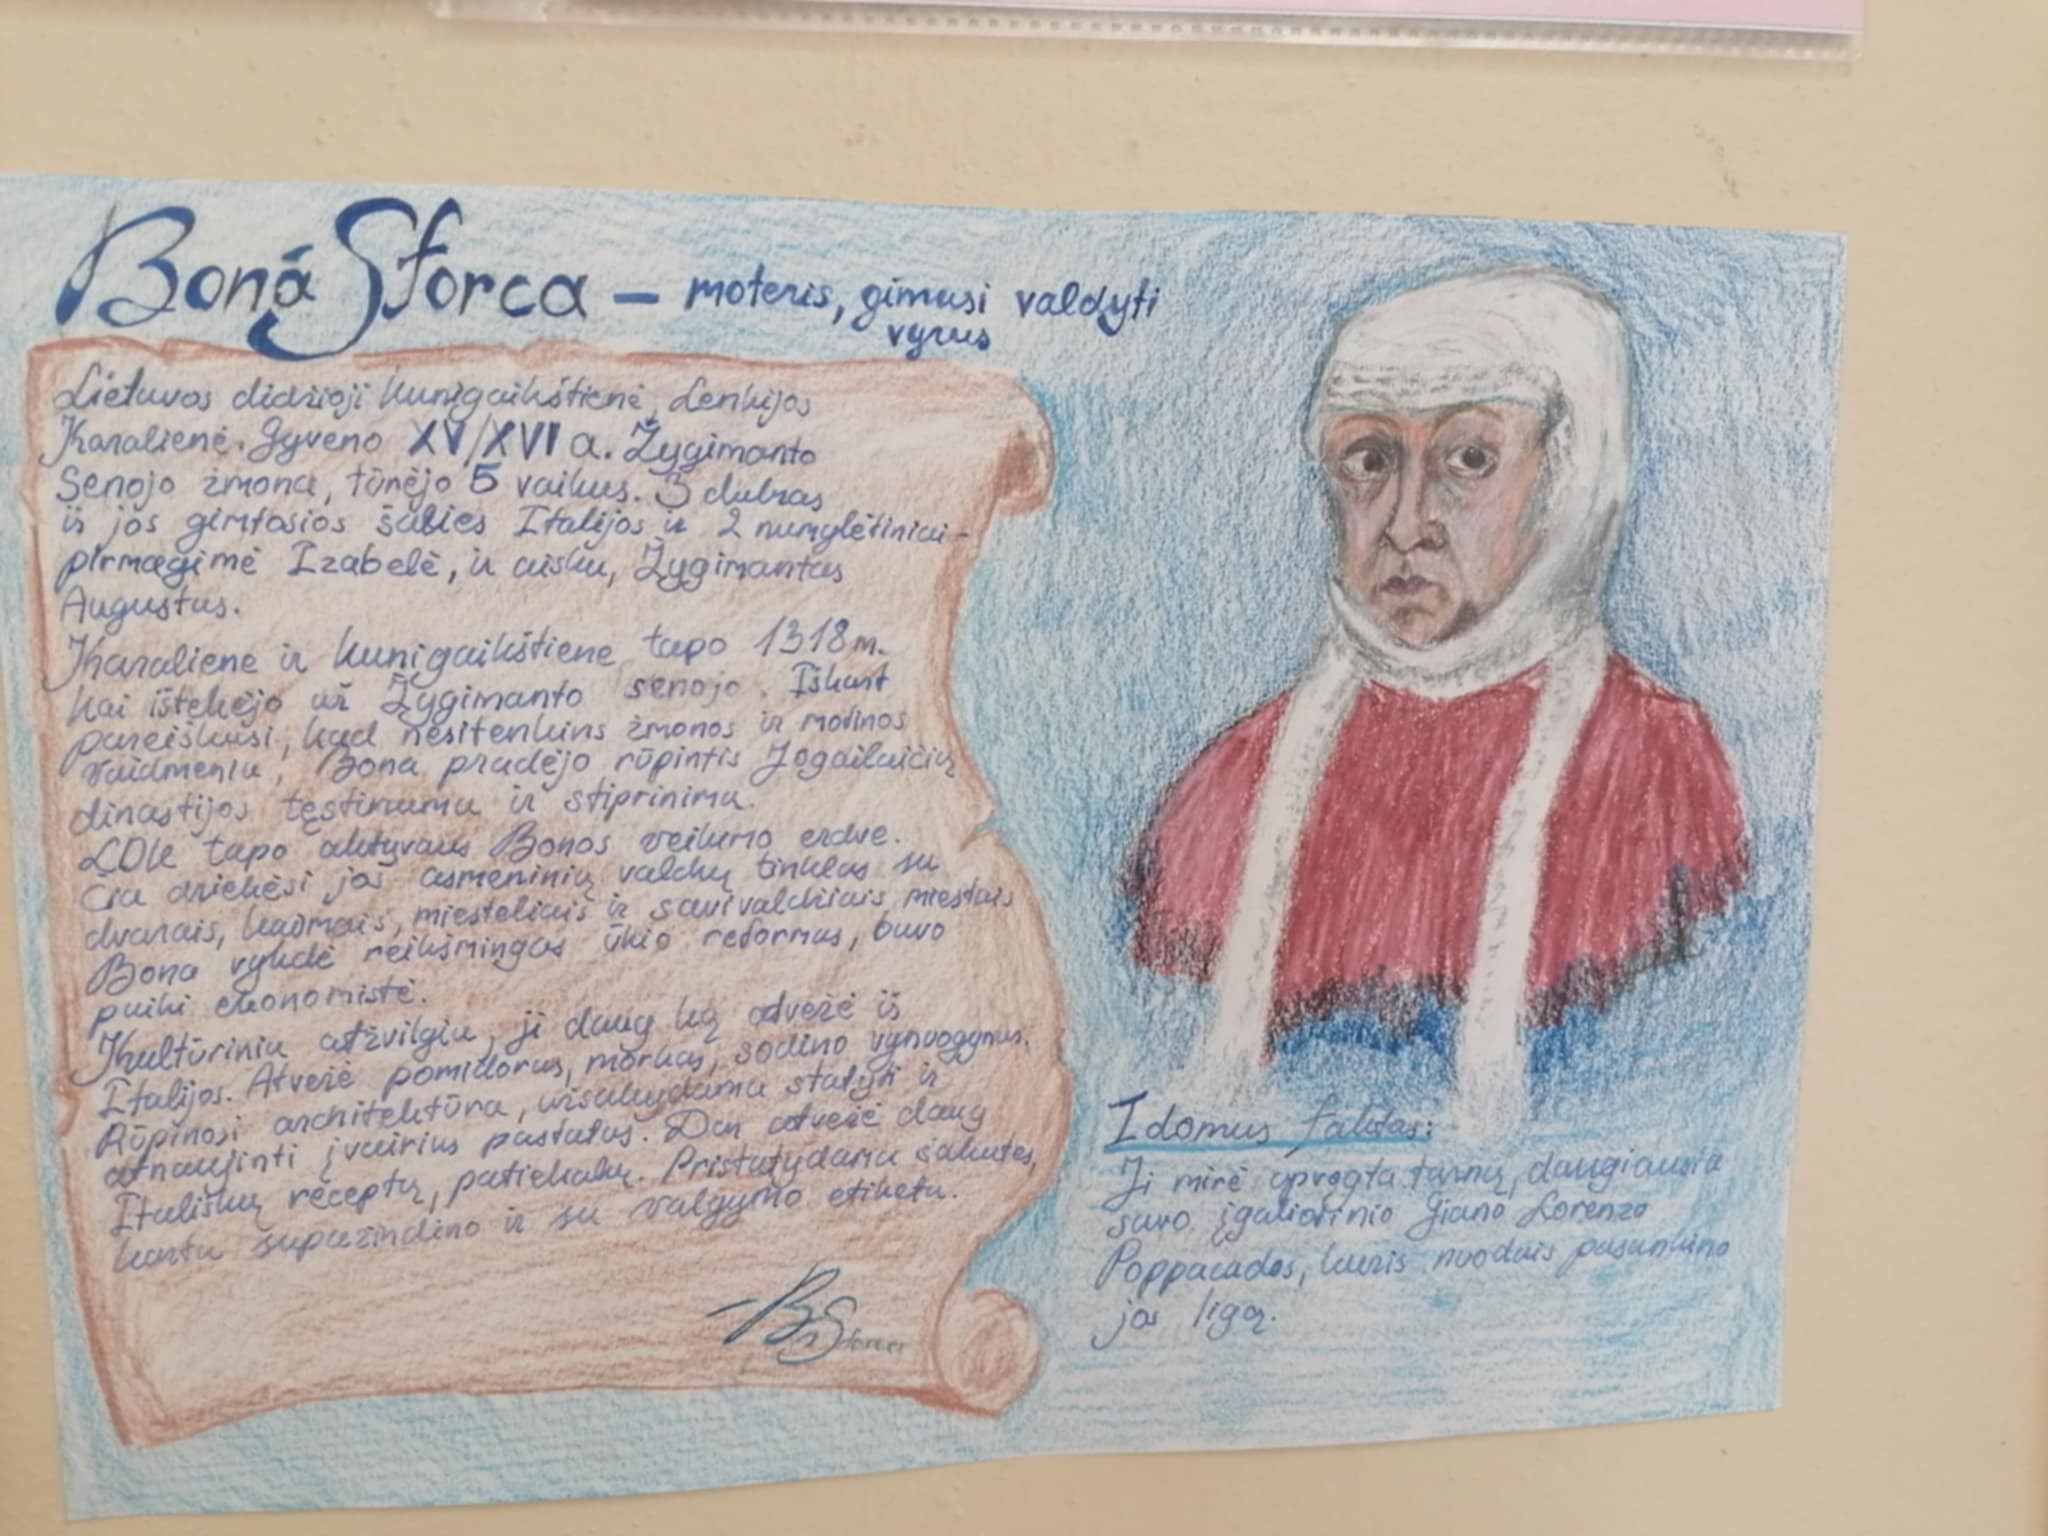 Bona Sforca – moteris, gimusi valdyti
vyrus
Lietuvos didžioji kunigaikštienė, Lenkijos
Karalienė. Gyveno XV/XVI a. Žygimanto
Senojo žmona, turėjo 5 vaikus. 3 dukras
iš jos gimtosios šalies Italijos ir 2 numylėtiniai -
pirmagimė Izabelė, ir aišku, Žygimantas
Augustus.
Karaliene ir kunigaikštiene tapo 1318 m.
kai ištekėjo už Žygimanto senojo. Iškart
pareiškusi, kad nesitenkins žmonos ir motinos
vaidmeniu, Bona pradėjo rūpintis Jogailaičių
dinastijos tęstinumu ir stiprinimu.
LDK tapo aktyvaus Bonos veikimo erdve.
Čia driekėsi jos asmeninių valdų tinklas su
dvarais, kaimais, miesteliais ir savivaldžiais miestais
Bona vykdė reikšmingas ūkio reformas, buvo
puiki ekonomistė.
Kultūriniu atžvilgiu, ji daug ką atvežė iš
Italijos. Atvežė pomidorus, morkas, sodino vynuogynus.
Rūpinosi architektūra, užsakydama statyti ir
atnaujinti įvairius pastatus. Dar atvežė daug
Itališkų receptų, patiekalų. Pristatydama šakutes,
kartu supažindino ir su valgymo etiketu.
- B. Sforca
Įdomus faktas:
Ji mirė apvogta tarnų, daugiausia
savo įgaliotinio Giano Lorenzo
Poppacados, kuris nuodais pasunkino
jos ligą.